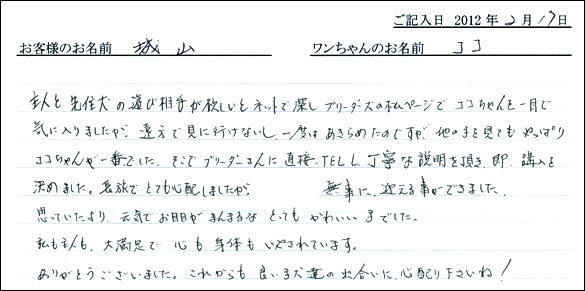 ご記入日 2012年2月17日
お客様のお名前 城山 ワンちゃんのお名前 ココ
主人と先住犬の遊び相手が欲しいとネットで探しブリーダーズのホムページでココちゃんを一目で
気に入りましたが、遠方で見に行けないし、一度はあきらめたのですが、他の子を見てもやっぱり
ココちゃんが一番でした。そこでブリーダーさんに直接、TELし、丁寧な説明を頂き、即、購入を
決めました。長旅でとても心配しましたが、 無事に、迎える事ができました。
思っていたより、元気でお目目がまんまるなとってもかわいい子でした。
私も主人も、大満足で 心も身体もいやされています。
ありがとうございました。これからも良い子犬達の出合いに、心配り下さいね!